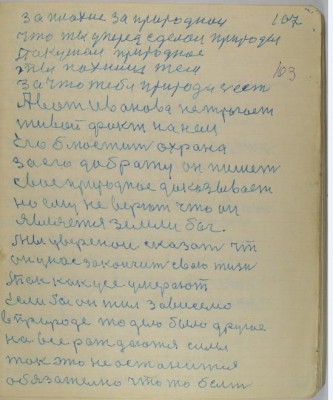 за плохие за природной 107
что ты уперед сделал природы
покупали природное
тем 103
за что тебя природа
А вот Иванова не трогает
живой факт на нам
его блюстит охрана
за его доброту он пишет
свое природное доказывает
но ему не верят что он
является земли бог.
Мы уверенои сказат чт
он у нас закончит свою жизн
так как усе умерают
Если бы он жил зависемо
в природе то дело было другое
на все рождаются силы
так это не останится
обязателно что то